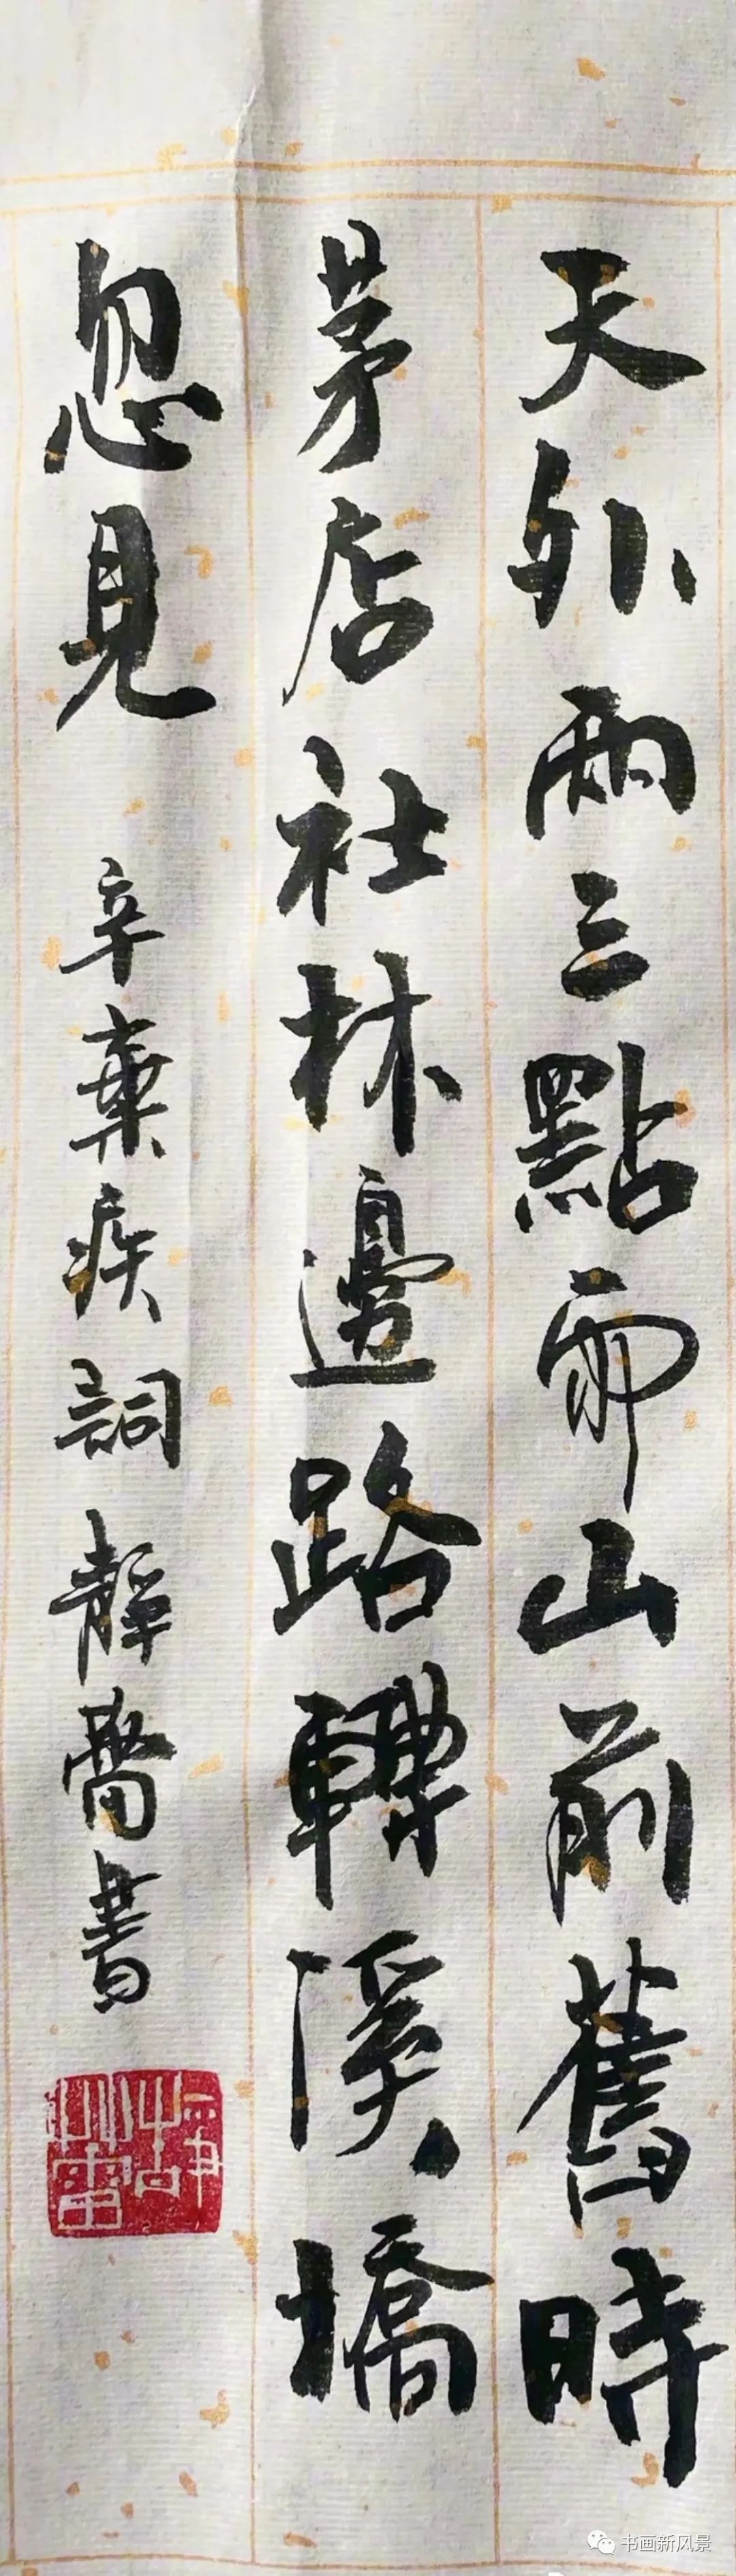 天外兩三點雨山前舊時
茅店社林邊路轉溪橋
忽見 辛棄疾詞 靜書
书画新风景